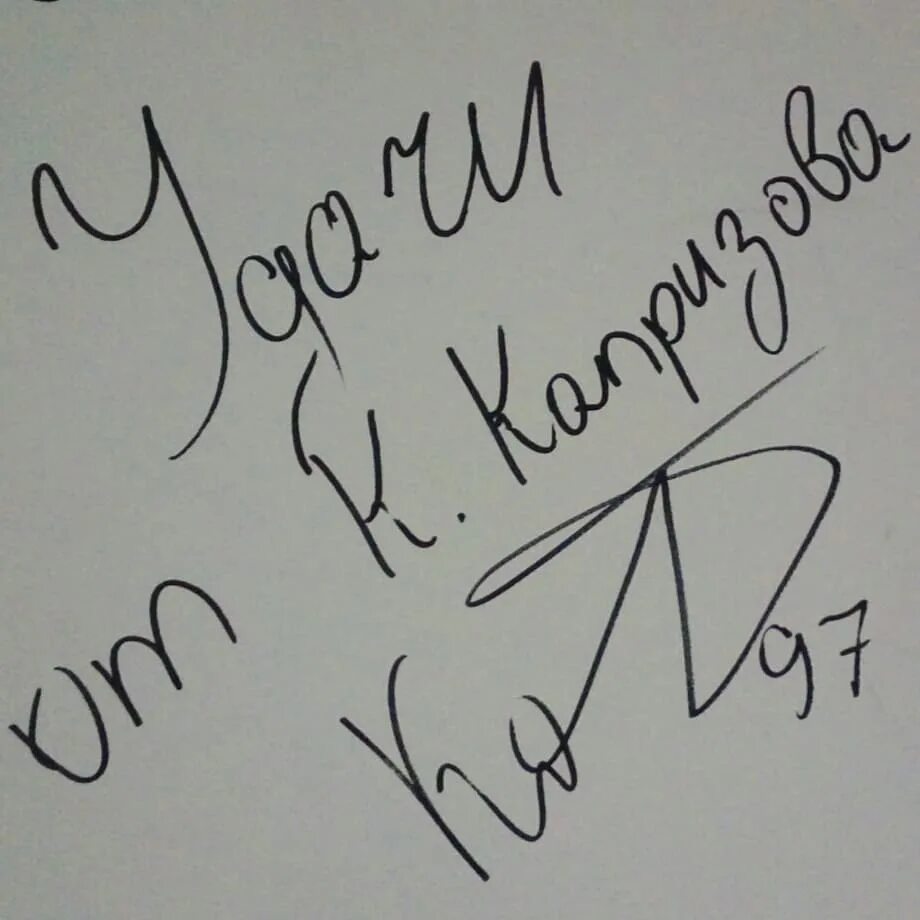 Удачи
от К. Капризова
97